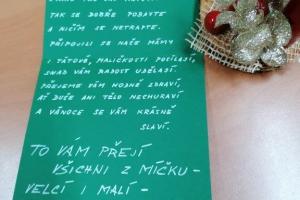 TAK SE DOBŘE POBAVTE
A NIČÍM SE NETRAPTE.
PŘIPOJILI SE NAŠE MÁMY
I TÁTOVÉ, MALIČKOSTI POSÍLAJÍ,
SNAD VÁM RADOST UDĚLAJÍ.
PŘEJEME VÁM HODNĚ ZDRAVÍ,
AŤ DUŠE ANI TĚLO NECHURAVÍ
A VÁNOCE SE VÁM KRÁSNĚ
SLAVÍ.
TO VÁM PŘEJÍ
VŠICHNI Z MÍČKU –
VELCÍ I MALÍ –